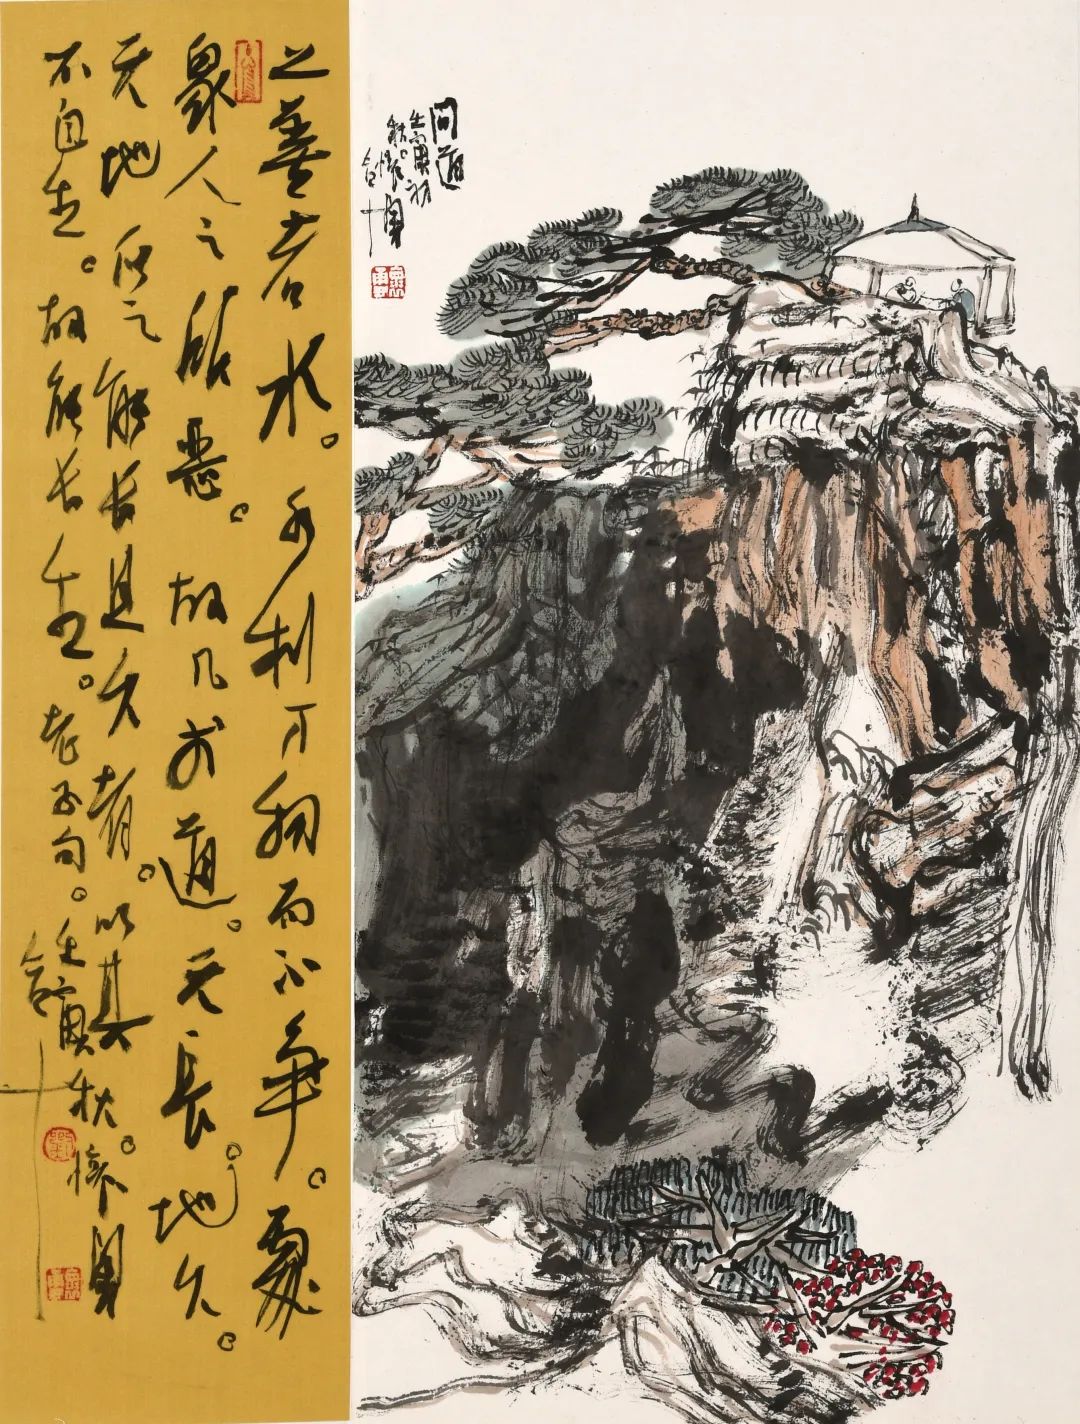 问道
壬寅初
秋。怀勇
上善若水。水利万物而不争。處
眾人之所恶。故几于道。天长。地久。
天地所以能长且久者。以其
不自生。故能长生。老子句。壬寅秋。怀勇